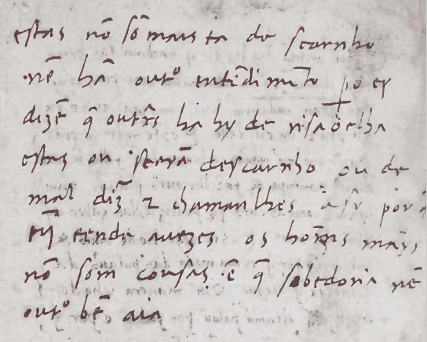 estas nõ sõ mais ca de scarnho
nẽ hã outº entẽdimẽto po er
dizẽ q̃ outras ha hy de risaoelha
estas ou seerã descarnho ou de
mal diz̃ z chamanlhes porq̃
riĩ ende auezes os homẽs mays
nõ som cousas ẽ q̃ sabedoria nẽ
outº bẽ aia